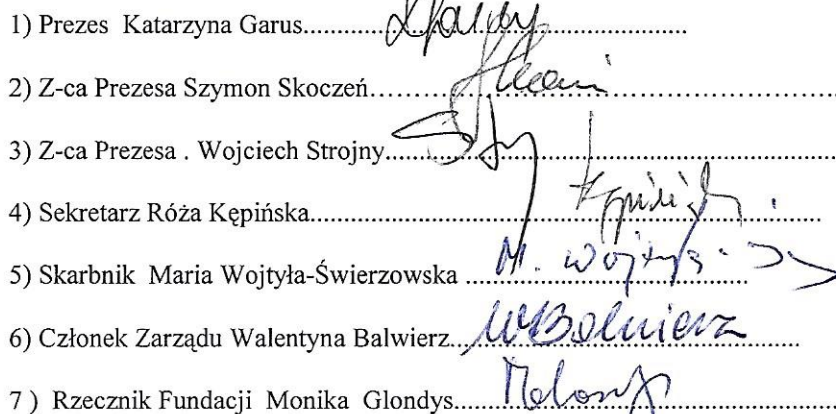 1) Prezes Katarzyna Garus..........
2) Z-ca Prezesa Szymon Skoczeń..........
3) Z-ca Prezesa . Wojciech Strojny..........
4) Sekretarz Róża Kępińska..........
5) Skarbnik Maria Wojtyła-Świerzowska .......... M. Wojtyła-
6) Członek Zarządu Walentyna Balwierz.......... WBalwierz
7 ) Rzecznik Fundacji Monika Glondys..........